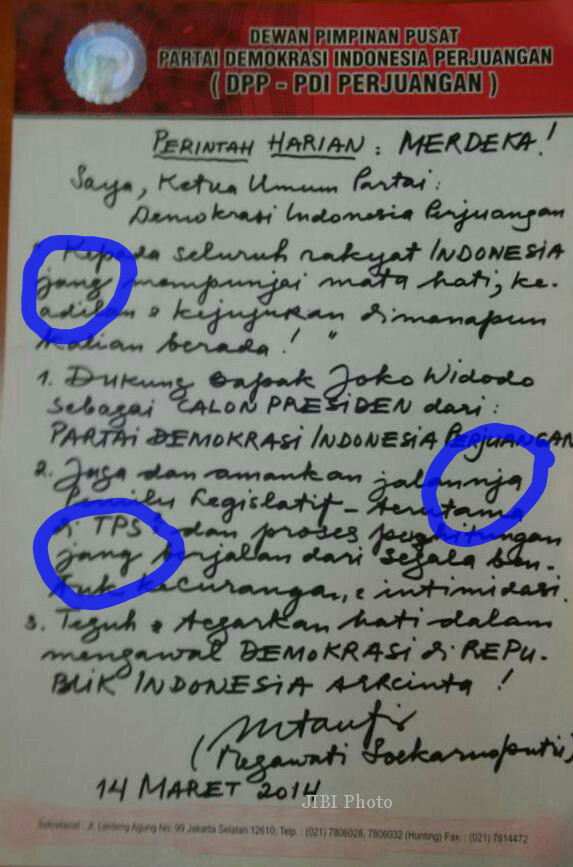 DEWAN PIMPINAN PUSAT
PARTAI DEMOKRASI INDONESIA PERJUANGAN
( DPP - PDI PERJUANGAN )
PERINTAH HARIAN : MERDEKA !
Saya, Ketua Umum Partai :
Demokrasi Indonesia Perjuangan
" Kepada seluruh rakyat INDONESIA
jang mempunjai mata hati, ke-
adilan & kejujuran dimanapun
kalian berada ! "
1. Dukung Bapak Joko Widodo
sebagai CALON PRESIDEN dari :
PARTAI DEMOKRASI INDONESIA PERJUANGAN
2. Jaga dan amankan jalannja
Pemilu Legislatif - terutama
di TPS² dan proses penghitungan
jang berjalan dari segala ben-
tuk kecurangan, & intimidasi.
3. Teguh & tegarkan hati dalam
mengawal DEMOKRASI di REPU-
BLIK INDONESIA tercinta !
( Megawati Soekarnoputri )
14 MARET 2014
JIBI Photo
Sekretariat : Jl. Lenteng Agung No. 99 Jakarta Selatan 12610; Telp. : (021) 7806028, 7806032 (Hunting) Fax. : (021) 7814472